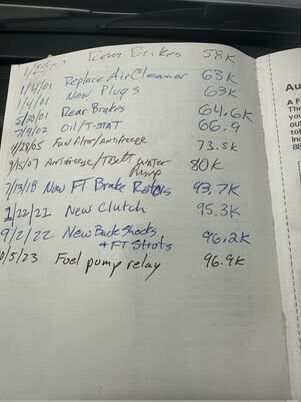 Rear Brakes 58K
Replace Air Cleaner 63K
1/4/01 New Plugs 63K
5/20/01 Rear Brakes 64.6K
7/9/02 Oil/T-STAT 66.9
Fuel filter/antifreeze 73.5K
9/15/07 Antifreeze/TBelt Water Pump 80K
7/13/18 New FT Brake Rotors 93.7K
1/22/21 New Clutch 95.3K
9/2/22 New Back Shocks
+ FT Struts 96.2K
/5/23 Fuel pump relay 96.9K
Au
A F
The
you
out
to